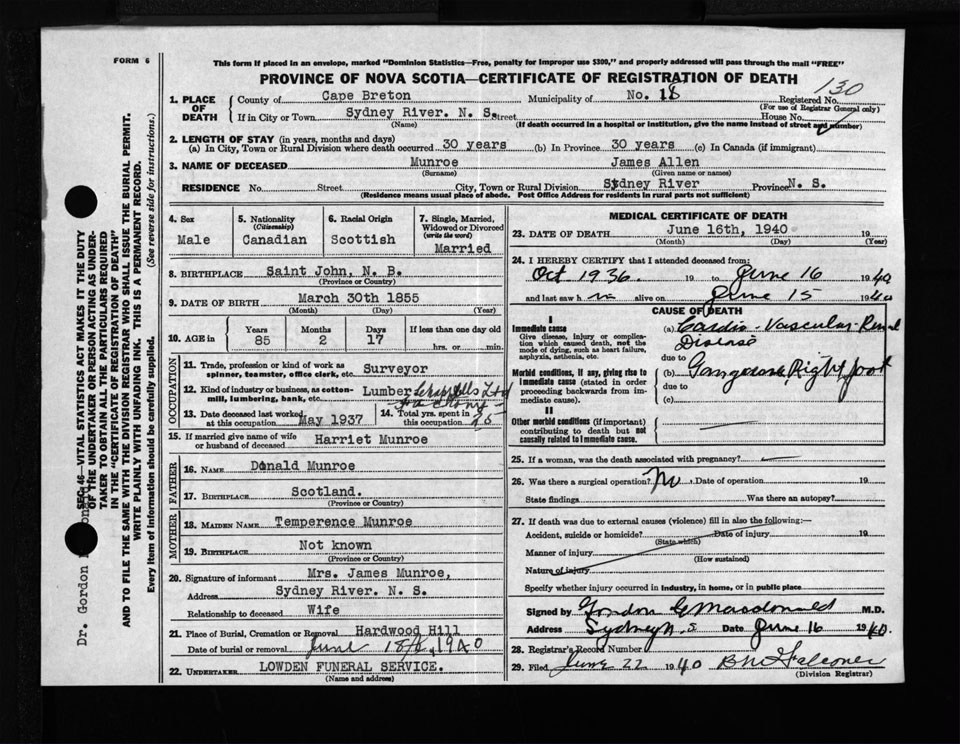 FORM 6
This form if placed in an envelope, marked "Dominion Statistics—Free, penalty for improper use $300," and properly addressed will pass through the mail "FREE"
PROVINCE OF NOVA SCOTIA—CERTIFICATE OF REGISTRATION OF DEATH
130
1. PLACE OF DEATH
County of Cape Breton Municipality of No. 18 Registered No.
(For use of Registrar General only)
If in City or Town Sydney River. N. S. Street House No.
(Name) (If death occurred in a hospital or institution, give the name instead of street and number)
2. LENGTH OF STAY (in years, months and days)
(a) In City, Town or Rural Division where death occurred 30 years (b) In Province 30 years (c) In Canada (if immigrant)
3. NAME OF DECEASED Munroe James Allen
(Surname) (Given name or names)
RESIDENCE No. Street City, Town or Rural Division Sydney River Province N. S.
(Residence means usual place of abode. Post Office Address for residents in rural parts not sufficient)
4. Sex
Male
5. Nationality
(Citizenship)
Canadian
6. Racial Origin
Scottish
7. Single, Married, Widowed or Divorced
(write the word)
Married
8. BIRTHPLACE Saint John, N. B.
(Province or Country)
9. DATE OF BIRTH March 30th 1855
(Month) (Day) (Year)
10. AGE in
Years Months Days If less than one day old
85 2 17 hrs. or min.
OCCUPATION
11. Trade, profession or kind of work as
spinner, teamster, office clerk, etc. Surveyor
12. Kind of industry or business, as cotton-
mill, lumbering, bank, etc. Lumber Chappells Ltd
13. Date deceased last worked
at this occupation May 1937
14. Total yrs. spent in
this occupation 25
15. If married give name of wife
or husband of deceased Harriet Munroe
FATHER
16. NAME Donald Munroe
17. BIRTHPLACE Scotland.
(Province or Country)
MOTHER
18. MAIDEN NAME Temperence Munroe
19. BIRTHPLACE Not known
(Province or Country)
20. Signature of informant Mrs. James Munroe,
Address Sydney River. N. S.
Relationship to deceased Wife
21. Place of Burial, Cremation or Removal Hardwood Hill
Date of burial or removal June 18th, 1940
22. UNDERTAKER LOWDEN FUNERAL SERVICE.
(Name and address)
MEDICAL CERTIFICATE OF DEATH
23. DATE OF DEATH June 16th, 1940 19
(Month) (Day) (Year)
24. I HEREBY CERTIFY that I attended deceased from:
Oct 1936 19 to June 16 1940
and last saw h im alive on June 15 1940
CAUSE OF DEATH
I
Immediate cause
Give disease, injury or complica-
tion which caused death, not the
mode of dying, such as heart failure,
asphyxia, asthenia, etc.
(a) Cardio-Vascular-Renal
Disease
due to
Morbid conditions, if any, giving rise to
immediate cause (stated in order
proceeding backwards from im-
mediate cause).
(b) Gangrene, Right foot
due to
(c)
II
Other morbid conditions (if important)
contributing to death but not
causally related to immediate cause.
25. If a woman, was the death associated with pregnancy?
26. Was there a surgical operation? No Date of operation 19
State findings Was there an autopsy?
27. If death was due to external causes (violence) fill in also the following:—
Accident, suicide or homicide? Date of injury 19
(State which)
Manner of injury
(How sustained)
Nature of injury
Specify whether injury occurred in industry, in home, or in public place
Signed by Gordon G Macdonald M.D.
Address Sydney N. S Date June 16 1940.
28. Registrar's Record Number
29. Filed June 22 1940 B M Falconer
(Division Registrar)
SEC. 46—VITAL STATISTICS ACT MAKES IT THE DUTY
OF THE UNDERTAKER OR PERSON ACTING AS UNDER-
TAKER TO OBTAIN ALL THE PARTICULARS REQUIRED
IN THE "CERTIFICATE OF REGISTRATION OF DEATH"
AND TO FILE THE SAME WITH THE DIVISION REGISTRAR WHO SHALL ISSUE THE BURIAL PERMIT.
WRITE PLAINLY WITH UNFADING INK. THIS IS A PERMANENT RECORD.
Every item of information should be carefully supplied. (See reverse side for instructions.)
Dr. Gordon